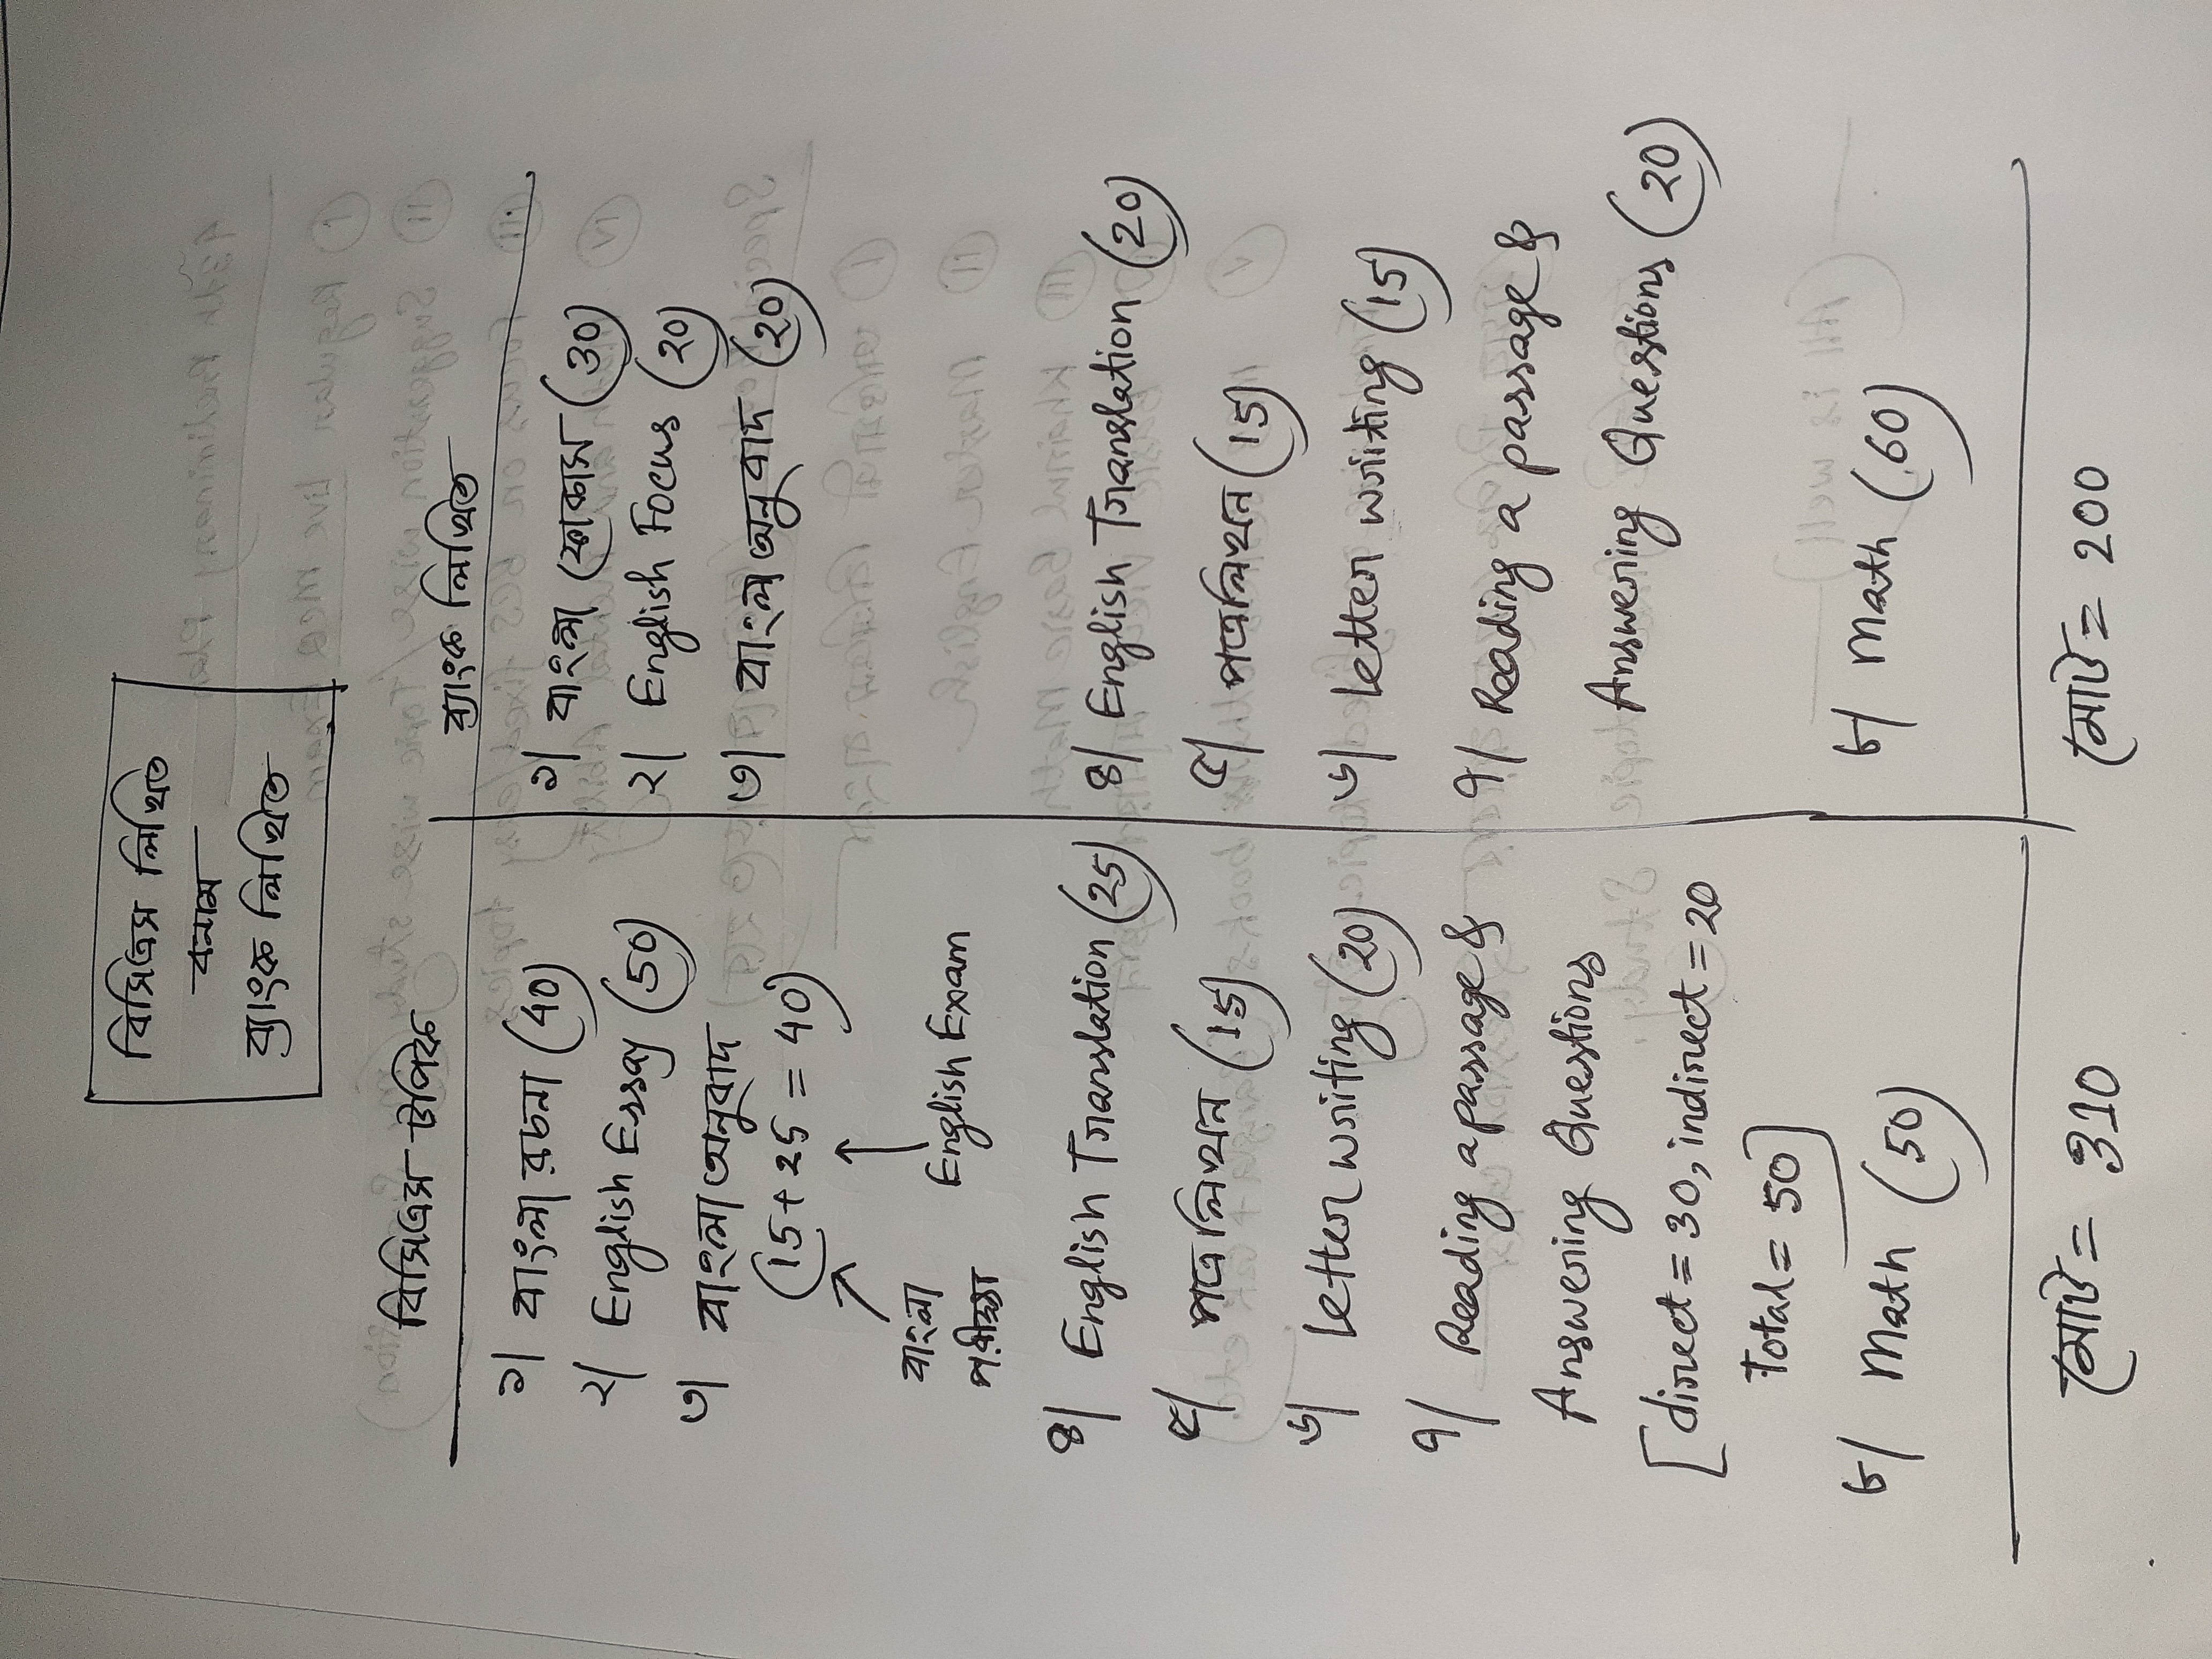 বিসিএস লিখিত
বনাম
ব্যাংক লিখিত
বিসিএস টপিক
১। বাংলা রচনা (40)
২। English Essay (50)
৩। বাংলা অনুবাদ
(15+25 = 40)
বাংলা
পরীক্ষা
English Exam
৪। English Translation (25)
৫। পত্রলিখন (15)
৬। Letter writing (20)
৭। Reading a passage &
Answering Questions
[direct = 30, indirect = 20
Total = 50]
৮। Math (50)
মোট = 310
ব্যাংক লিখিত
১। বাংলা ফোকাস (30)
২। English Focus (20)
৩। বাংলা অনুবাদ (20)
৪। English Translation (20)
৫। পত্রলিখন (15)
৬। Letter writing (15)
৭। Reading a passage &
Answering Questions (20)
৮। Math (60)
মোট = 200